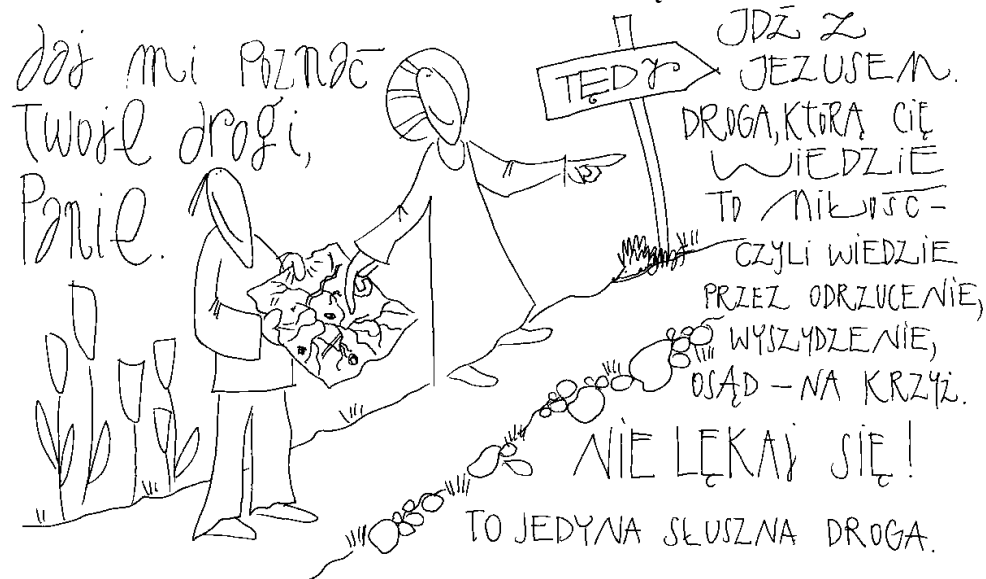 daj mi poznać
Twoje drogi,
Panie.
TĘDY
JDŹ Z
JEZUSEM.
DROGA, KTÓRĄ CIĘ
WIEDZIE
TO MIŁOŚĆ -
CZYLI WIEDZIE
PRZEZ ODRZUCENIE,
WYSZYDZENIE,
OSĄD - NA KRZYŻ.
NIE LĘKAJ SIĘ!
TO JEDYNA SŁUSZNA DROGA.